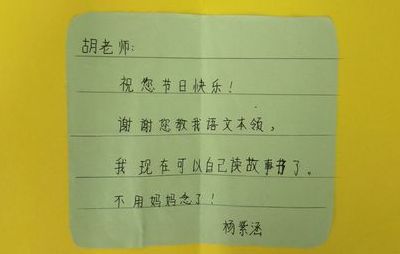 胡老师:
祝您节日快乐!
谢谢您教我语文本领,
我现在可以自己读故事书了。
不用妈妈念了!
杨紫涵